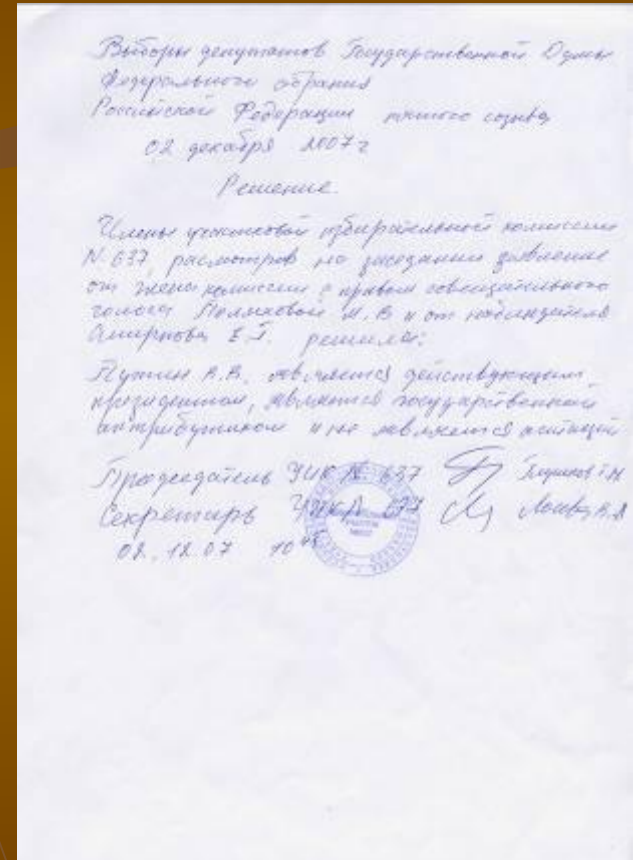 Выборы депутатов Государственной Думы
Федерального собрания
Российской Федерации пятого созыва
02 декабря 2007 г
Решение.
Члены участковой избирательной комиссии
N. 637, расмотров на заседании заявление
от члена комиссии с правом совещательного
голоса М. В и от наблюдателя
Смирнова Е.Г. решила:
Путин В.В. является действующим
президентом, является государственной
антрибутикой и не является агитацией
Председатель УИК N. 637
Секретарь УИК N 637
02.12.07 10 45